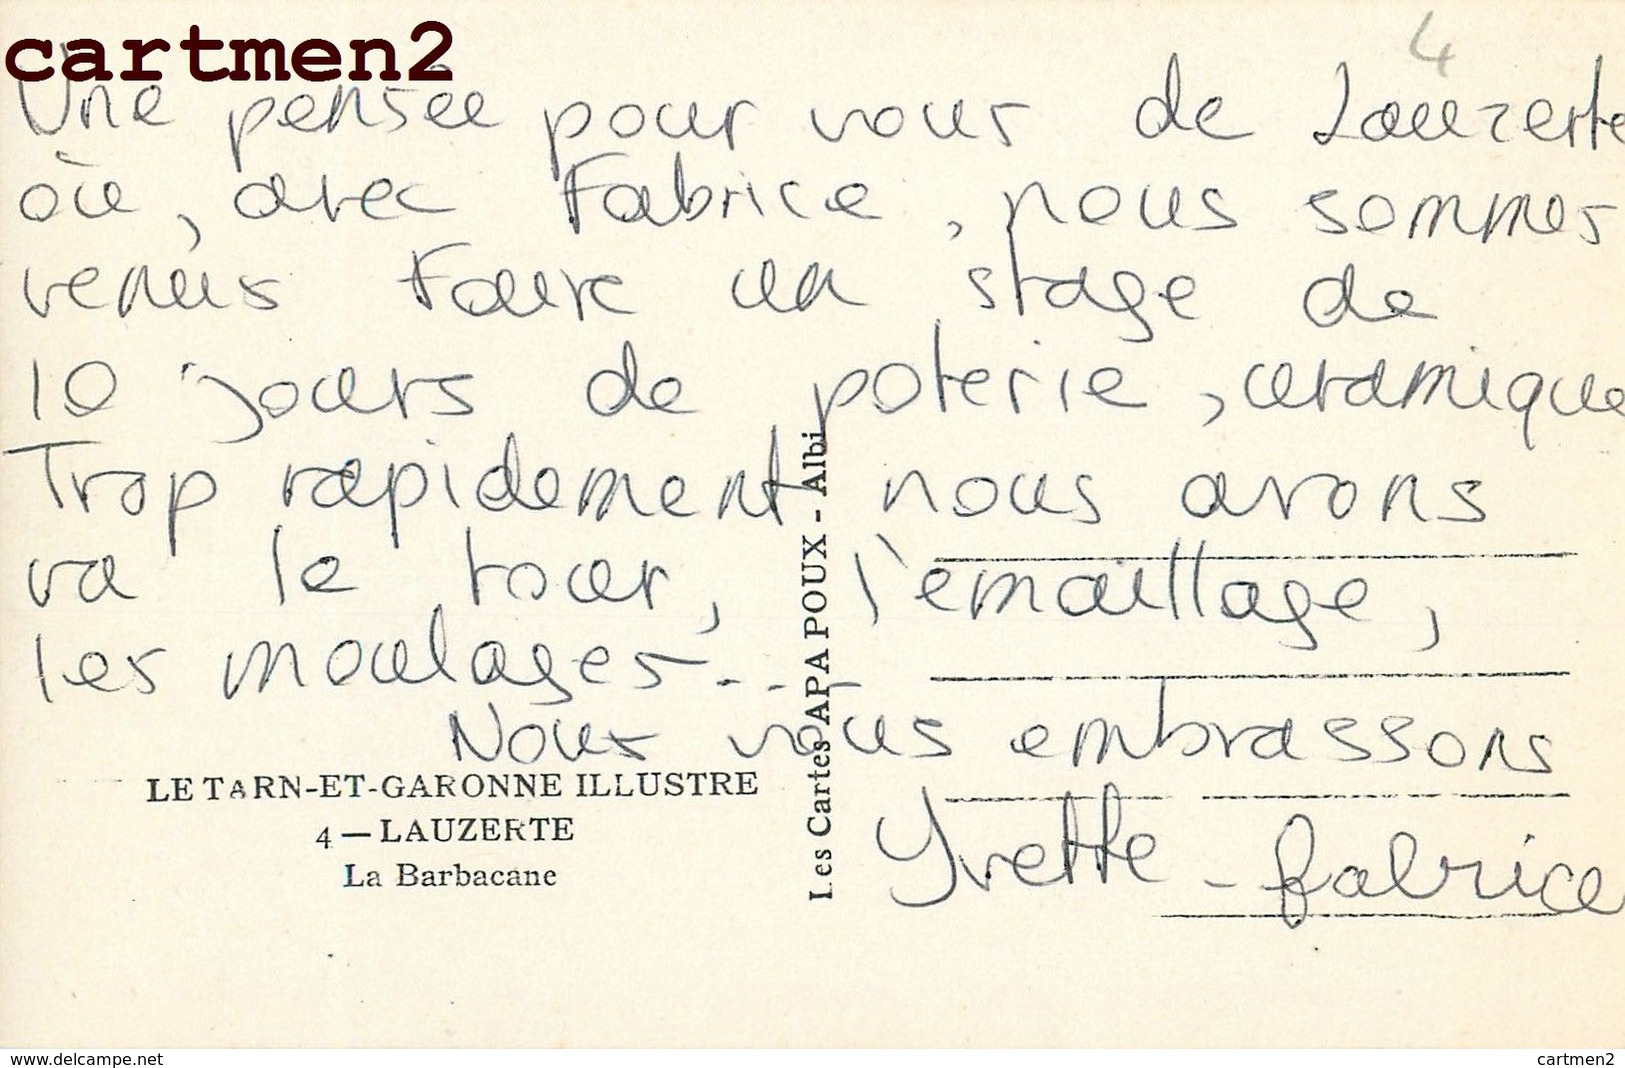 cartmen2
4
Une pensée pour vous de Lauzerte
où, avec Fabrice, nous sommes
venus faire un stage de
10 jours de poterie, céramique
Trop rapidement nous avons
vu le tour, l'émaillage,
les moulages...
Nous vous embrassons
Yvette - fabrice
LE TARN-ET-GARONNE ILLUSTRE
4 — LAUZERTE
La Barbacane
Les Cartes APA POUX - Albi
www.delcampe.net
cartmen2